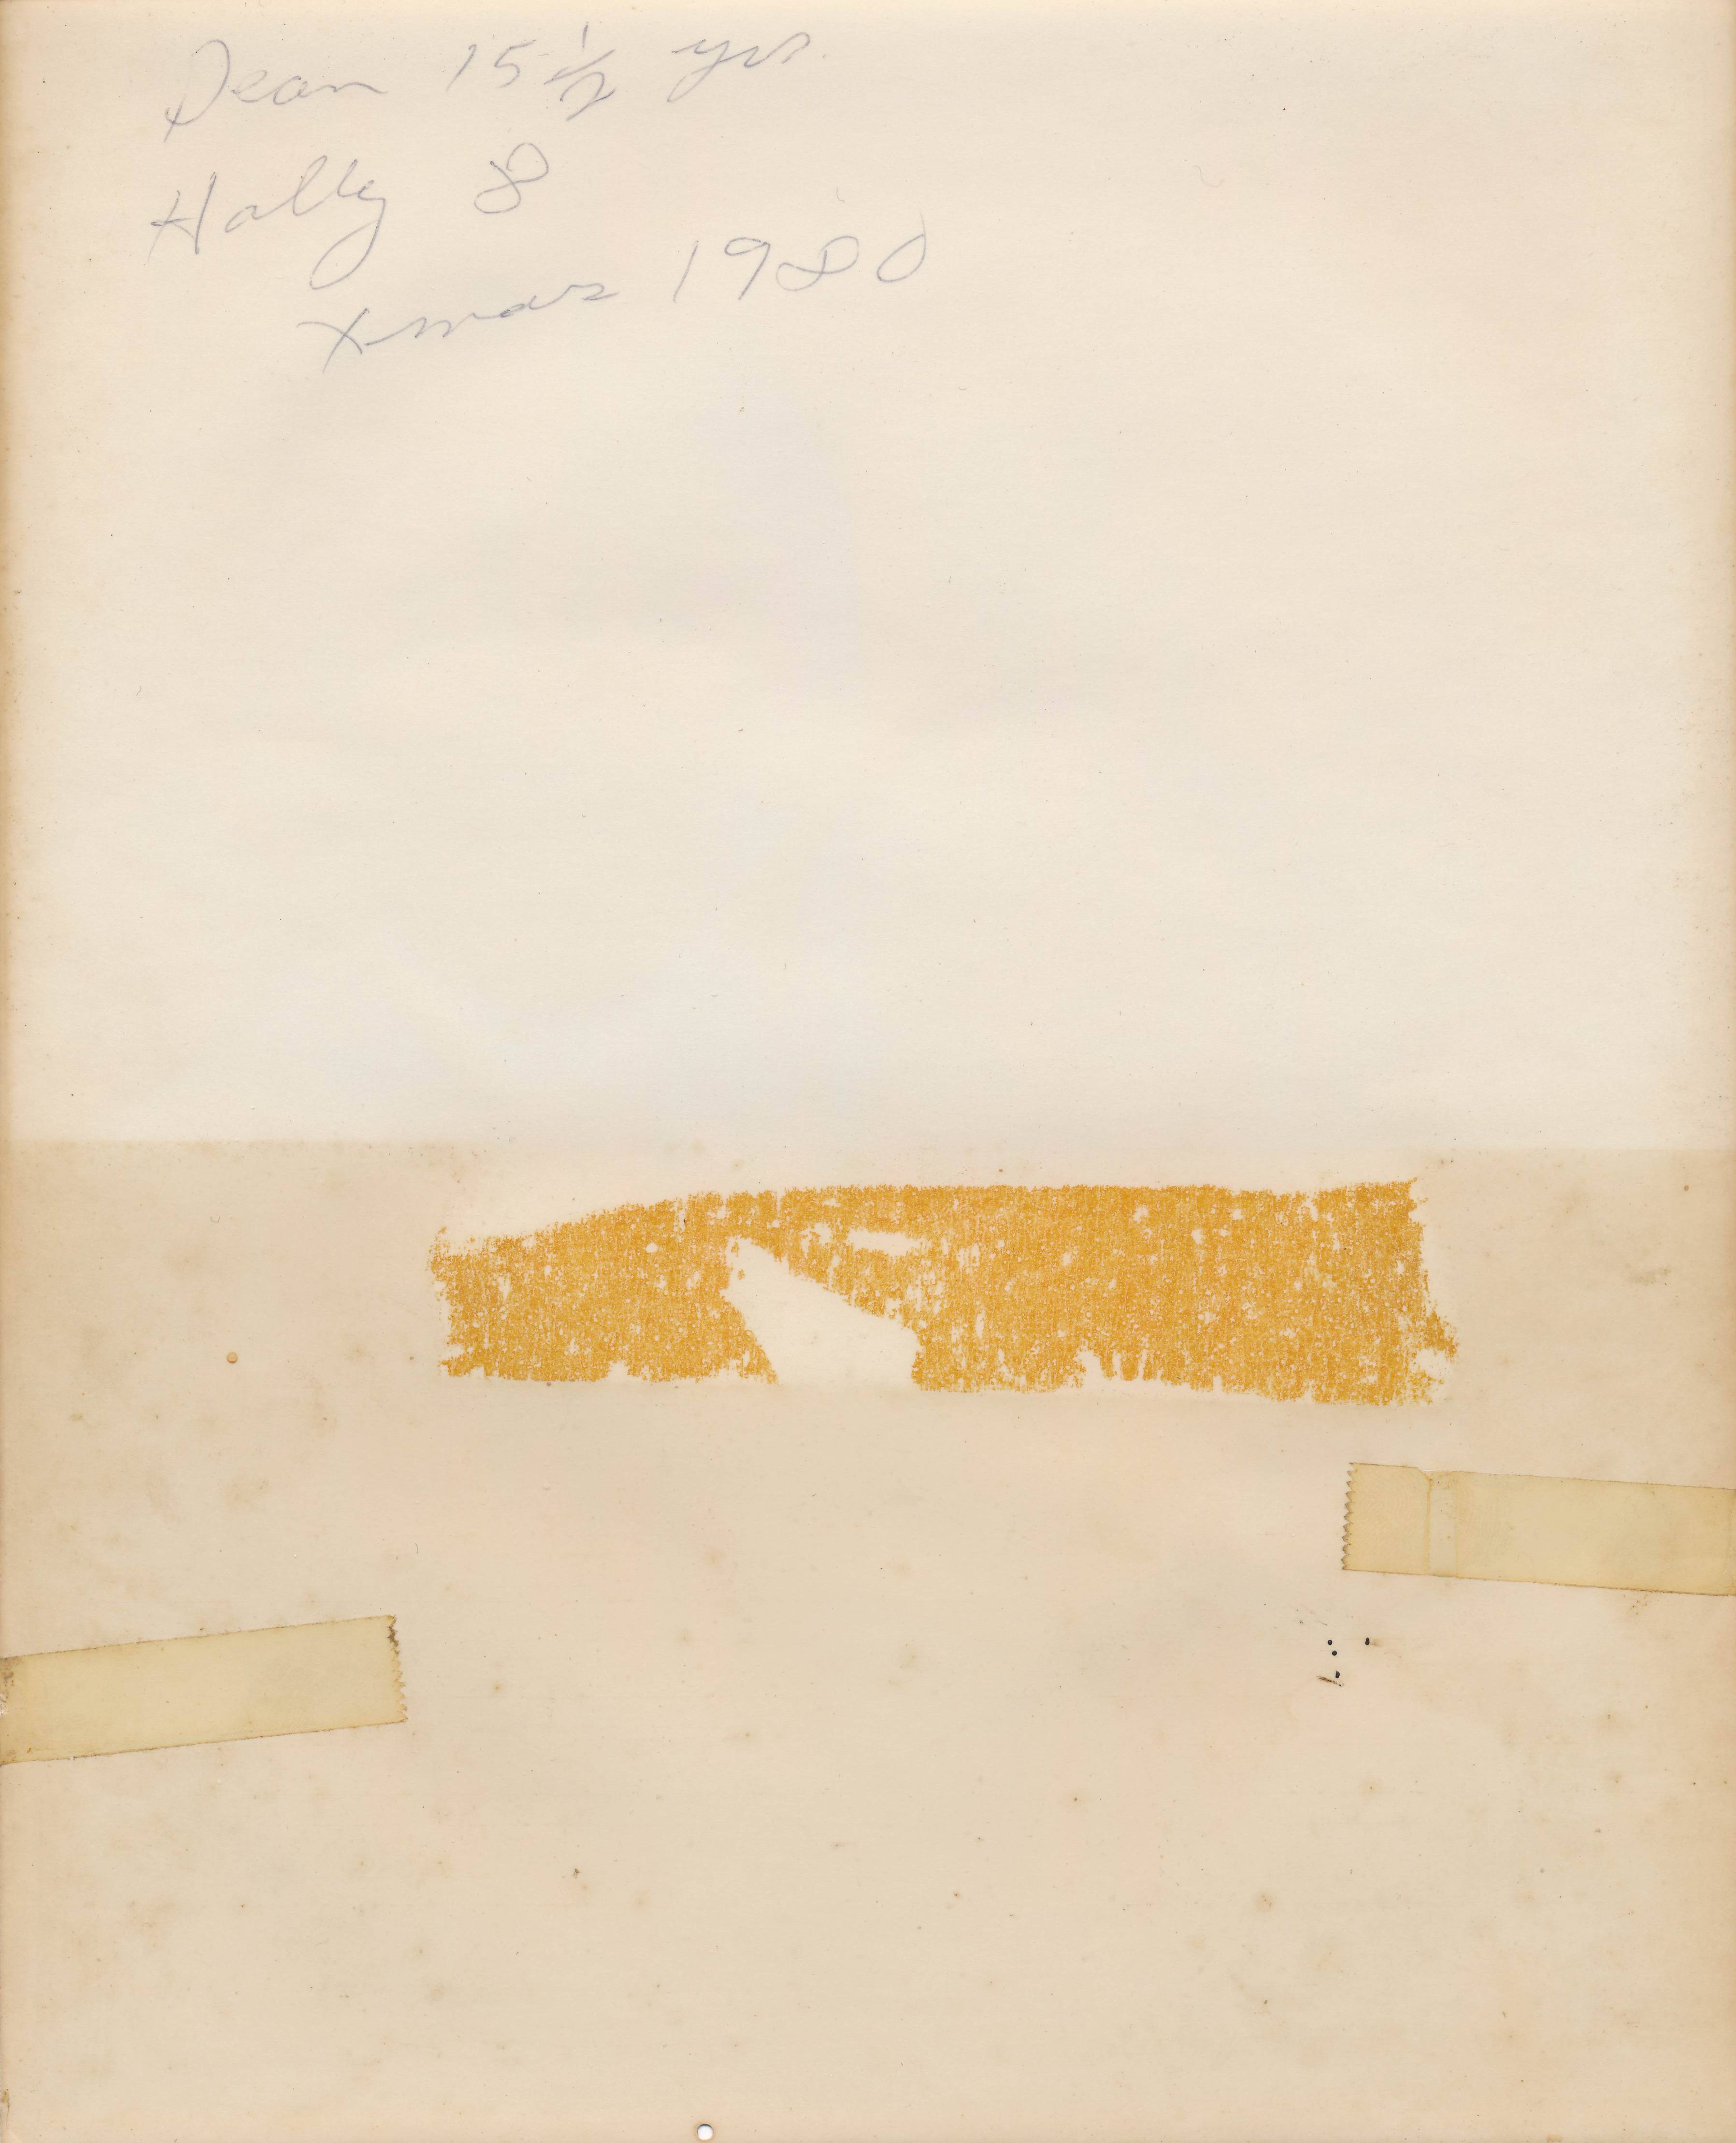 Dean 15 1/2 yrs
Holly 8
Xmas 1980